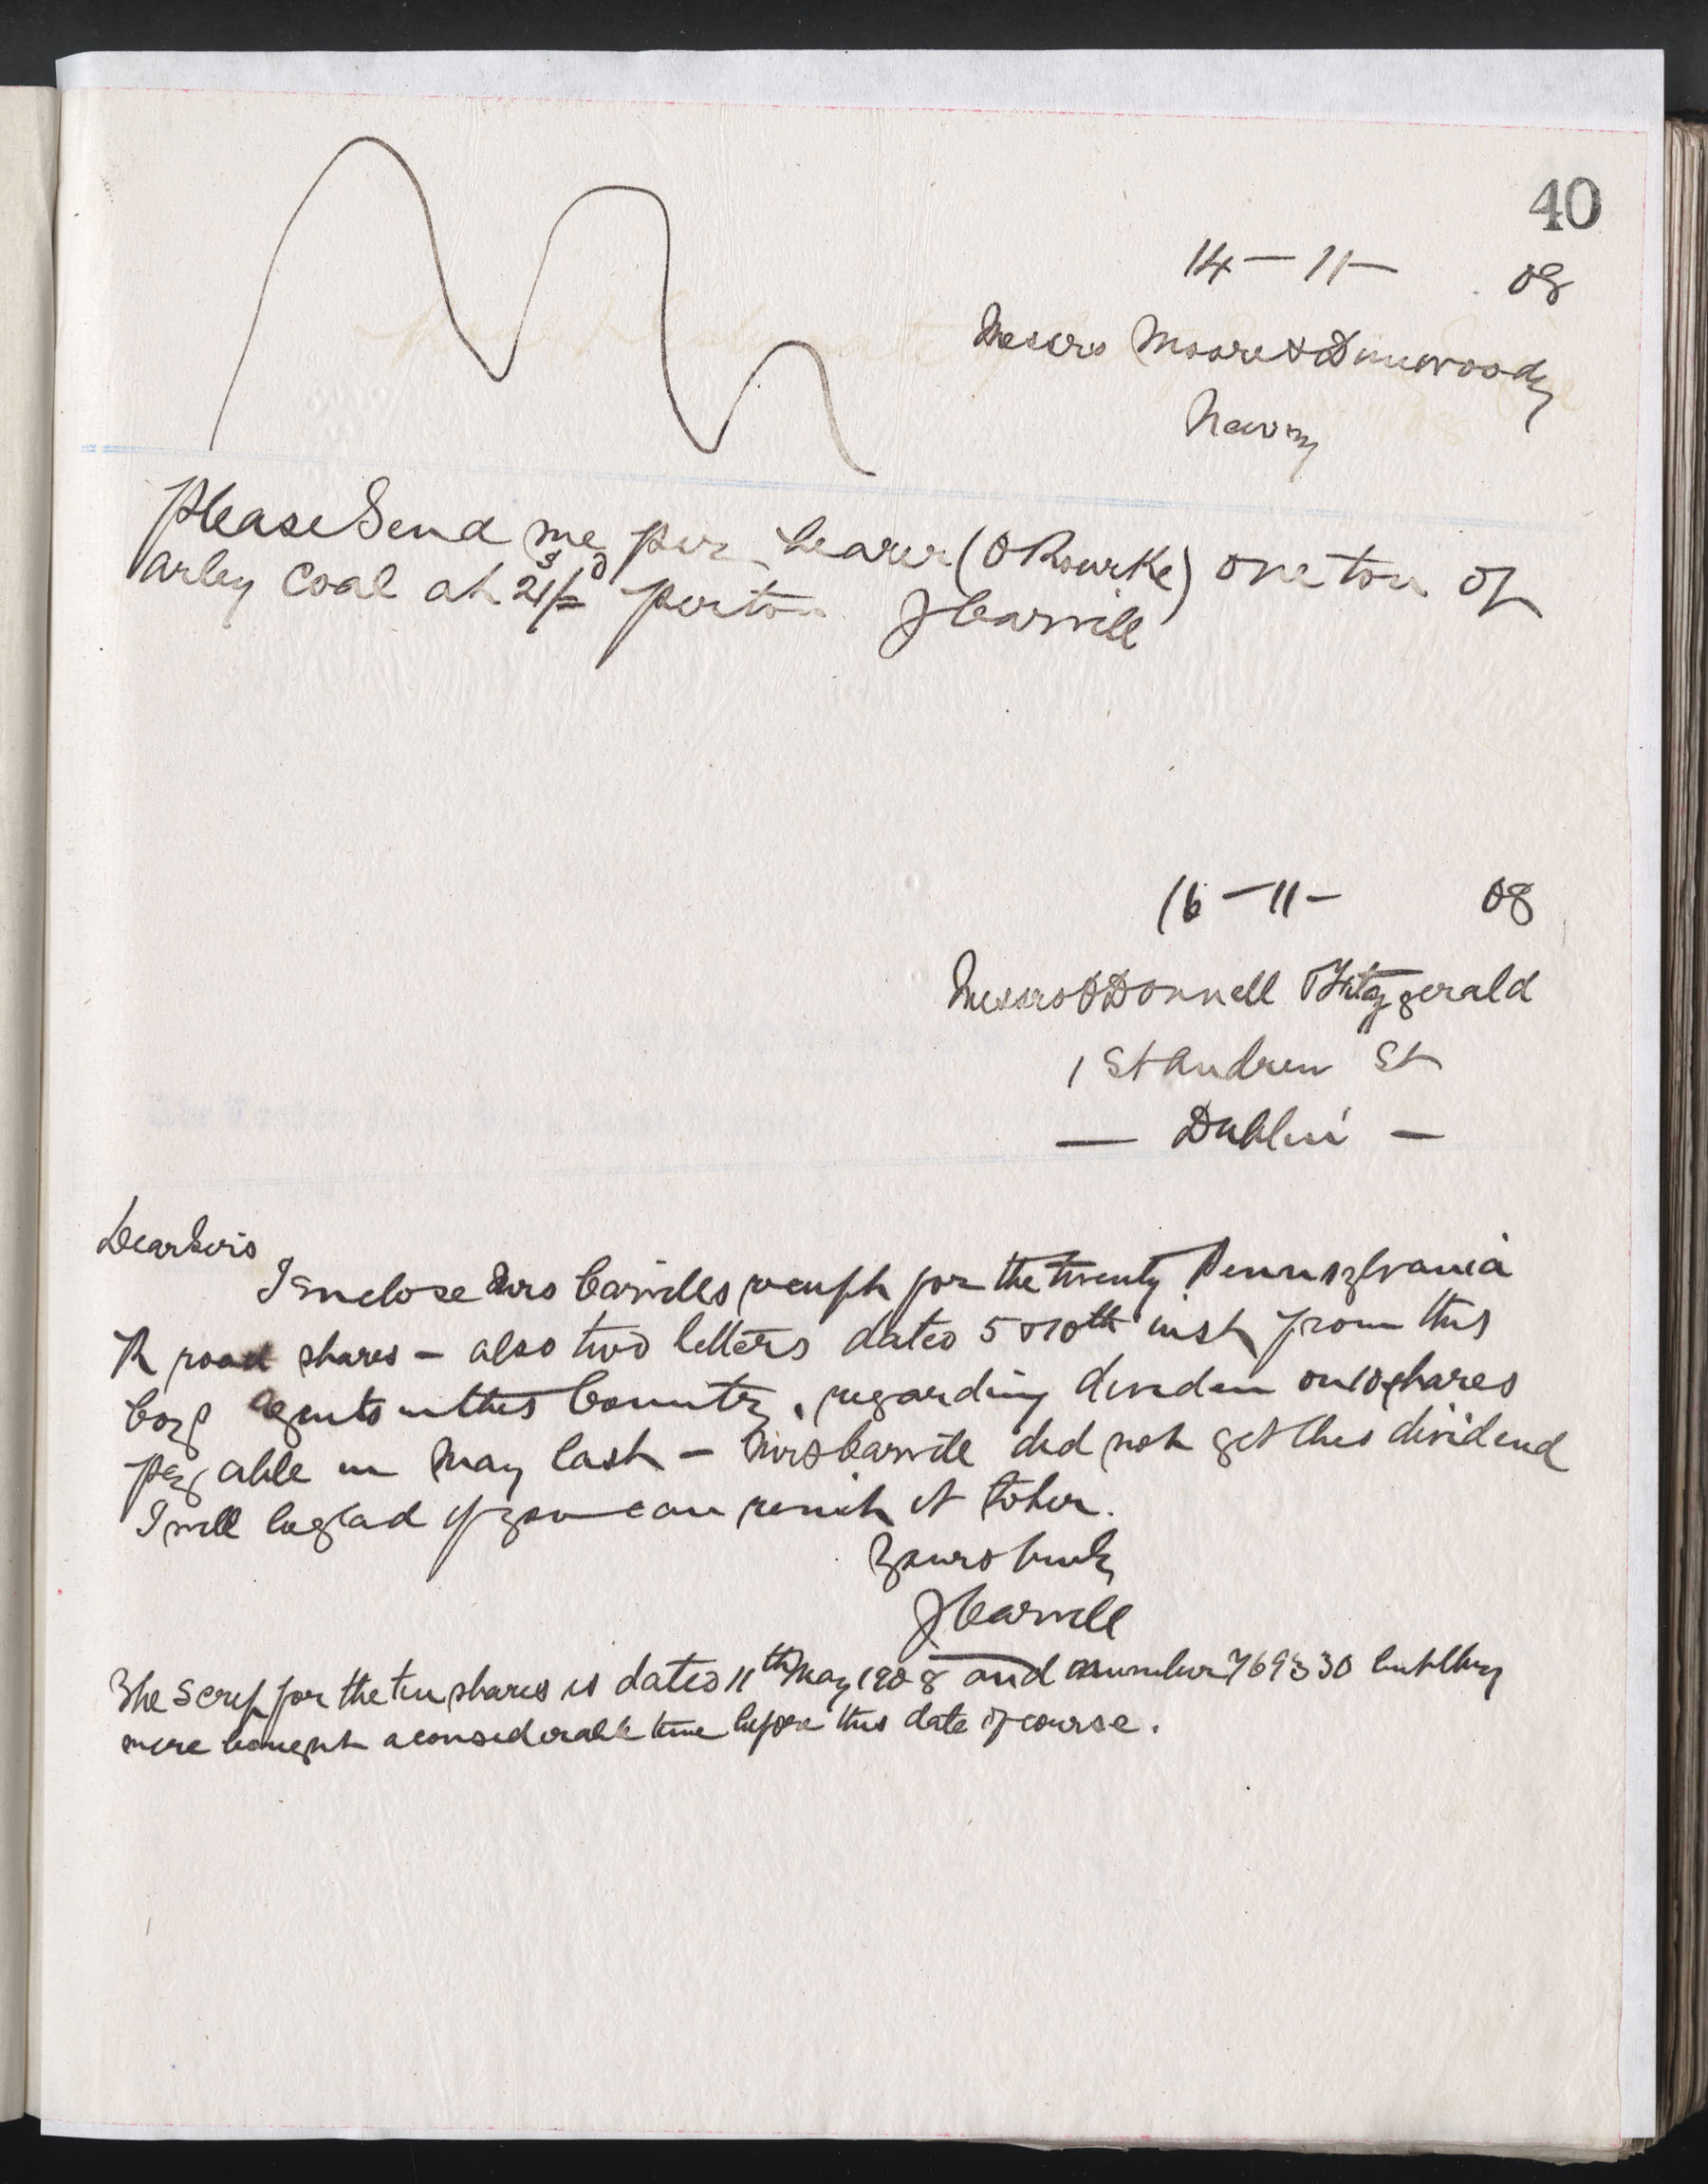 40
14 - 11 - 08
Messrs Moore & Dinwoody
Newry
Please Send me per bearer (O Rourke) one ton of
arley coal at 21/= per ton J Carvill
16 - 11 - 08
Messrs O Donnell & Fitzgerald
1 St Andrew St
- Dublin -
Dear Sirs
I enclose Mrs Carvills receipt for the twenty Pennsylvania
R road shares - also two letters dated 5 & 10th inst from this
Coys agents in this Country, regarding dividen on 10 shares
payable in May last - Mrs Carvill did not get this dividend
I will be glad if you can remit it to her.
Yours truly
J Carvill
The Scrip for the ten shares is dated 11th May 1908 and number 769330 but they
were bought a considerable time before this date of course.